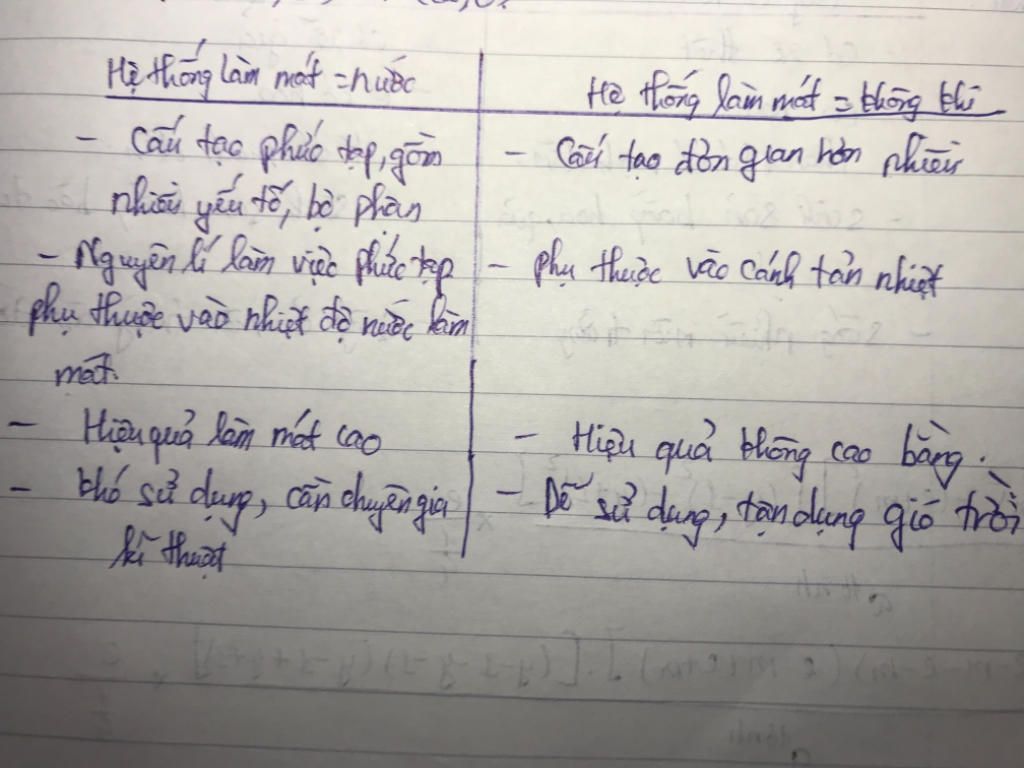 Hệ thống làm mát = nước
- Cấu tạo phức tạp, gồm
nhiều yếu tố, bộ phận
- Nguyên lí làm việc phức tạp
phụ thuộc vào nhiệt độ nước làm
mát.
- Hiệu quả làm mát cao
- khó sử dụng, cần chuyên gia
kĩ thuật
Hệ thống làm mát = không khí
- Cấu tạo đơn giản hơn nhiều
- phụ thuộc vào cánh tản nhiệt
- Hiệu quả không cao bằng.
- Dễ sử dụng, tận dụng gió trời